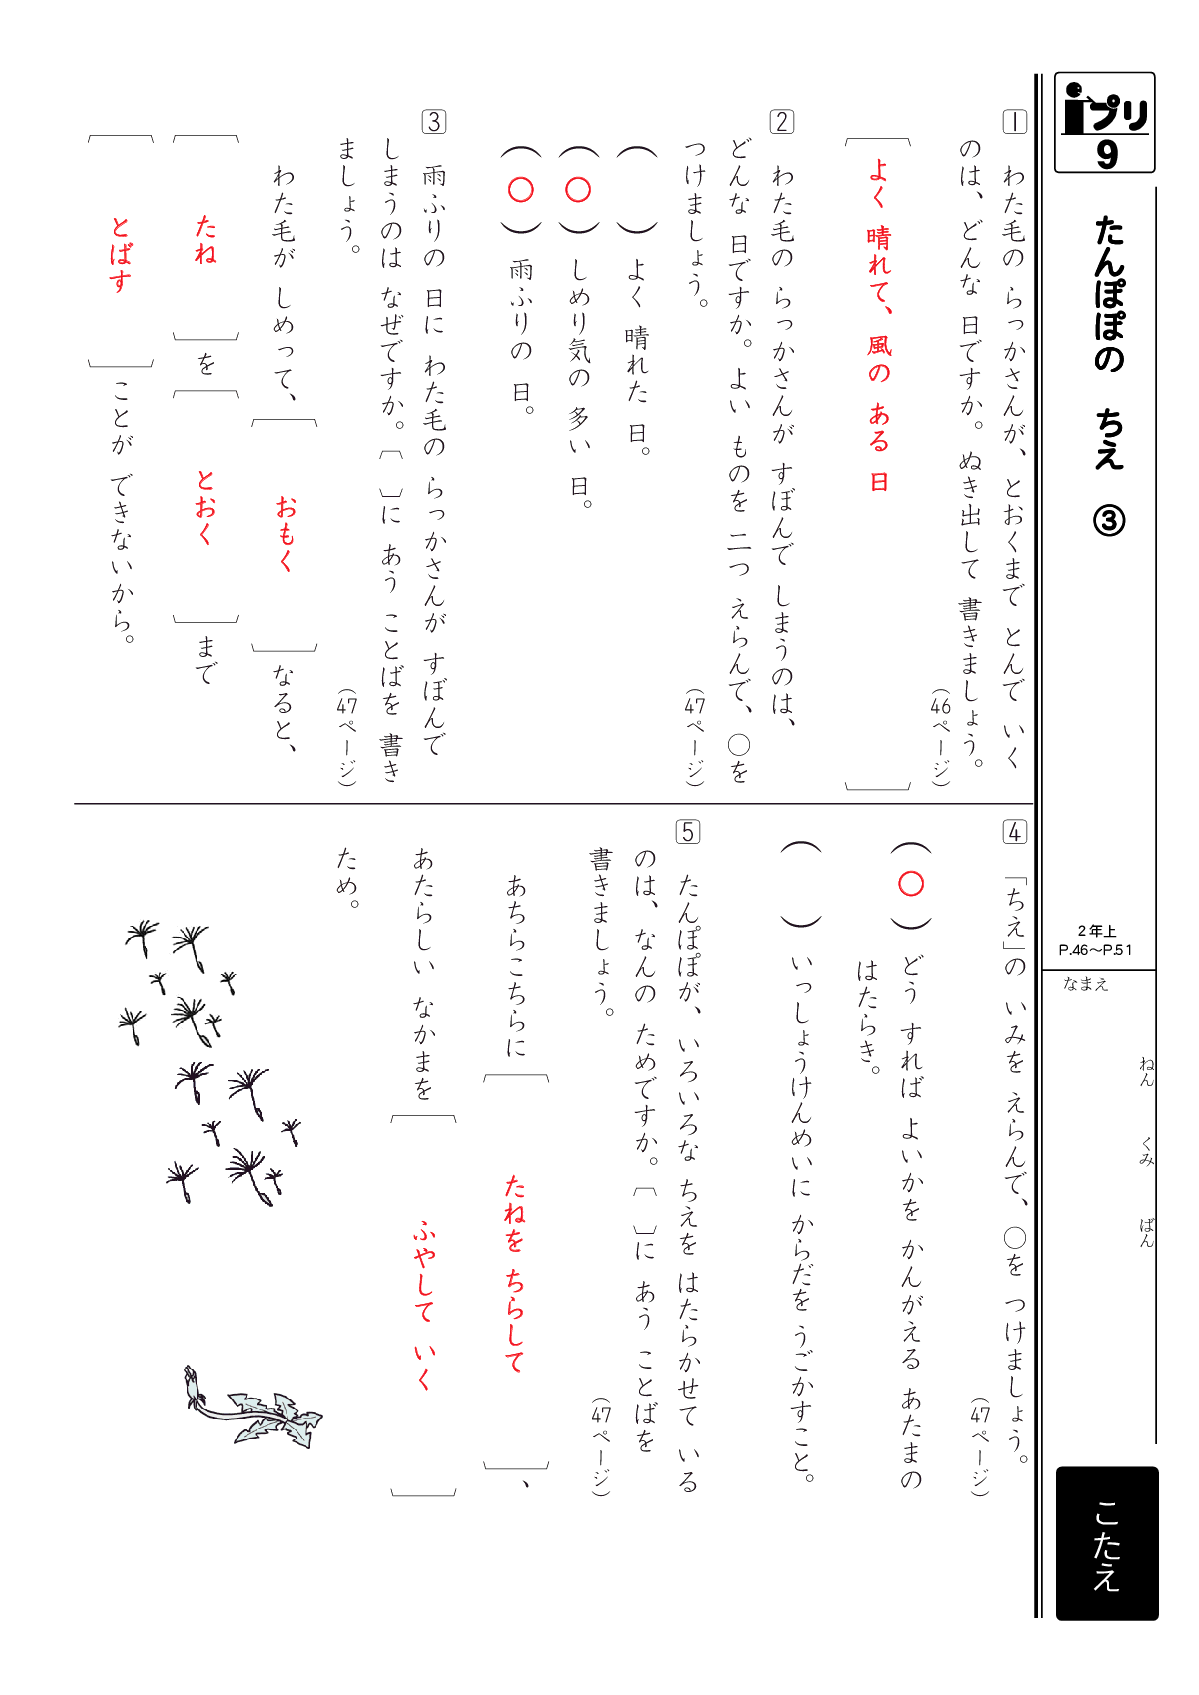 iプリ
9
たんぽぽの ちえ ③
2年上
P.46〜P.51
なまえ
ねん くみ ばん
こたえ
1 わた毛の らっかさんが、とおくまで とんで いく
のは、どんな 日ですか。ぬき出して 書きましょう。
(46ページ)
よく 晴れて、風の ある 日
2 わた毛の らっかさんが すぼんで しまうのは、
どんな 日ですか。よい ものを 二つ えらんで、○を
つけましょう。
(47ページ)
( ) よく 晴れた 日。
(○) しめり気の 多い 日。
(○) 雨ふりの 日。
3 雨ふりの 日に わた毛の らっかさんが すぼんで
しまうのは なぜですか。〔 〕に あう ことばを 書き
ましょう。
(47ページ)
わた毛が しめって、〔おもく〕なると、
〔たね〕を〔とおく〕まで
〔とばす〕ことが できないから。
4 「ちえ」の いみを えらんで、○を つけましょう。
(47ページ)
(○) どう すれば よいかを かんがえる あたまの
はたらき。
( ) いっしょうけんめいに からだを うごかすこと。
5 たんぽぽが、いろいろな ちえを はたらかせて いる
のは、なんの ためですか。〔 〕に あう ことばを
書きましょう。
(47ページ)
あちらこちらに〔たねを ちらして〕、
あたらしい なかまを〔ふやして いく〕
ため。